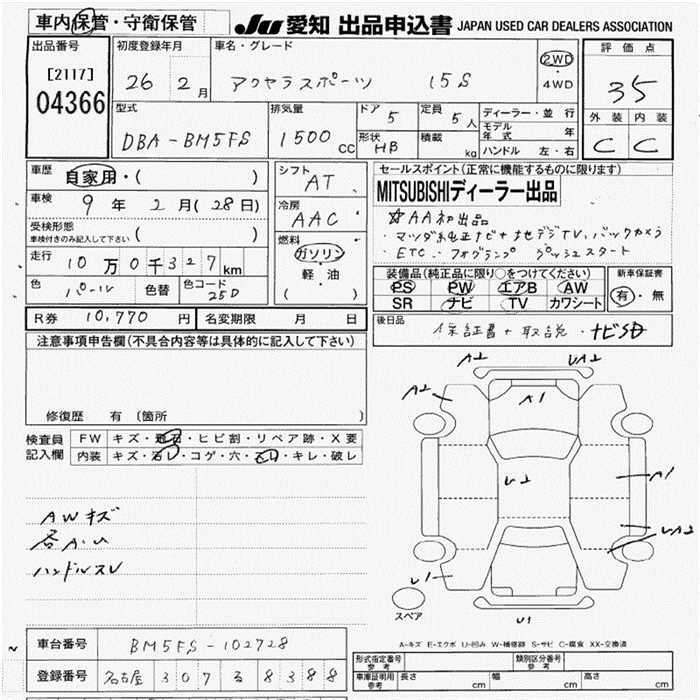 車内保管・守衛保管
JU 愛知 出品申込書 JAPAN USED CAR DEALERS ASSOCIATION
出品番号
[2117]
04366
初度登録年月
26 年 2 月
車名・グレード
アクセラスポーツ 15S
2WD
・
4WD
評価点
35
外装 内装
C C
型式
DBA-BM5FS
排気量
1500 CC
ドア 5
形状 HB
定員 5 人
積載 kg
ディーラー・並行
モデル年式 年
ハンドル 左・右
車歴
自家用・( )
車検 9 年 2 月 (28 日)
受検形態
車検付きのみ記入して下さい ( )
走行 10 万 0 千 327 km
色 パール 色替 色コード 25D
シフト
AT
冷房
AAC
燃料
ガソリン
・
軽・油
( )
R券 10,770 円 名変期限 月 日
セールスポイント(正常に機能するものに限ります)
MITSUBISHIディーラー出品
☆AA初出品
・マツダ純正ナビ+地デジTV, バックカメラ
・ETC・フォグランプ プッシュスタート
装備品(純正品に限り○をつけてください)
PS PW エアB AW
SR ナビ TV カワシート
新車保証書
有・無
後日品
保証書+取説・ナビSD
注意事項申告欄(不具合内容等は具体的に記入して下さい)
修復歴 有 〔箇所 〕
検査員記入欄
FW キズ・飛石・ヒビ割・リペア跡・X要
内装 キズ・汚レ・コゲ・穴・スレ・キレ・破レ
AWキズ
各A・U
ハンドルスレ
A2 UA2
A2 A1
U2 A1
UA2
U1
U1
スペア
A-キズ E-エクボ U-凹み W-補修跡 S-サビ C-腐食 XX-交換済
車台番号 BM5FS-102728
登録番号 名古屋 307 る 8388
形式指定番号 参考
類別区分番号 参考
車庫証明用 参考 長さ cm 幅 cm 高さ cm